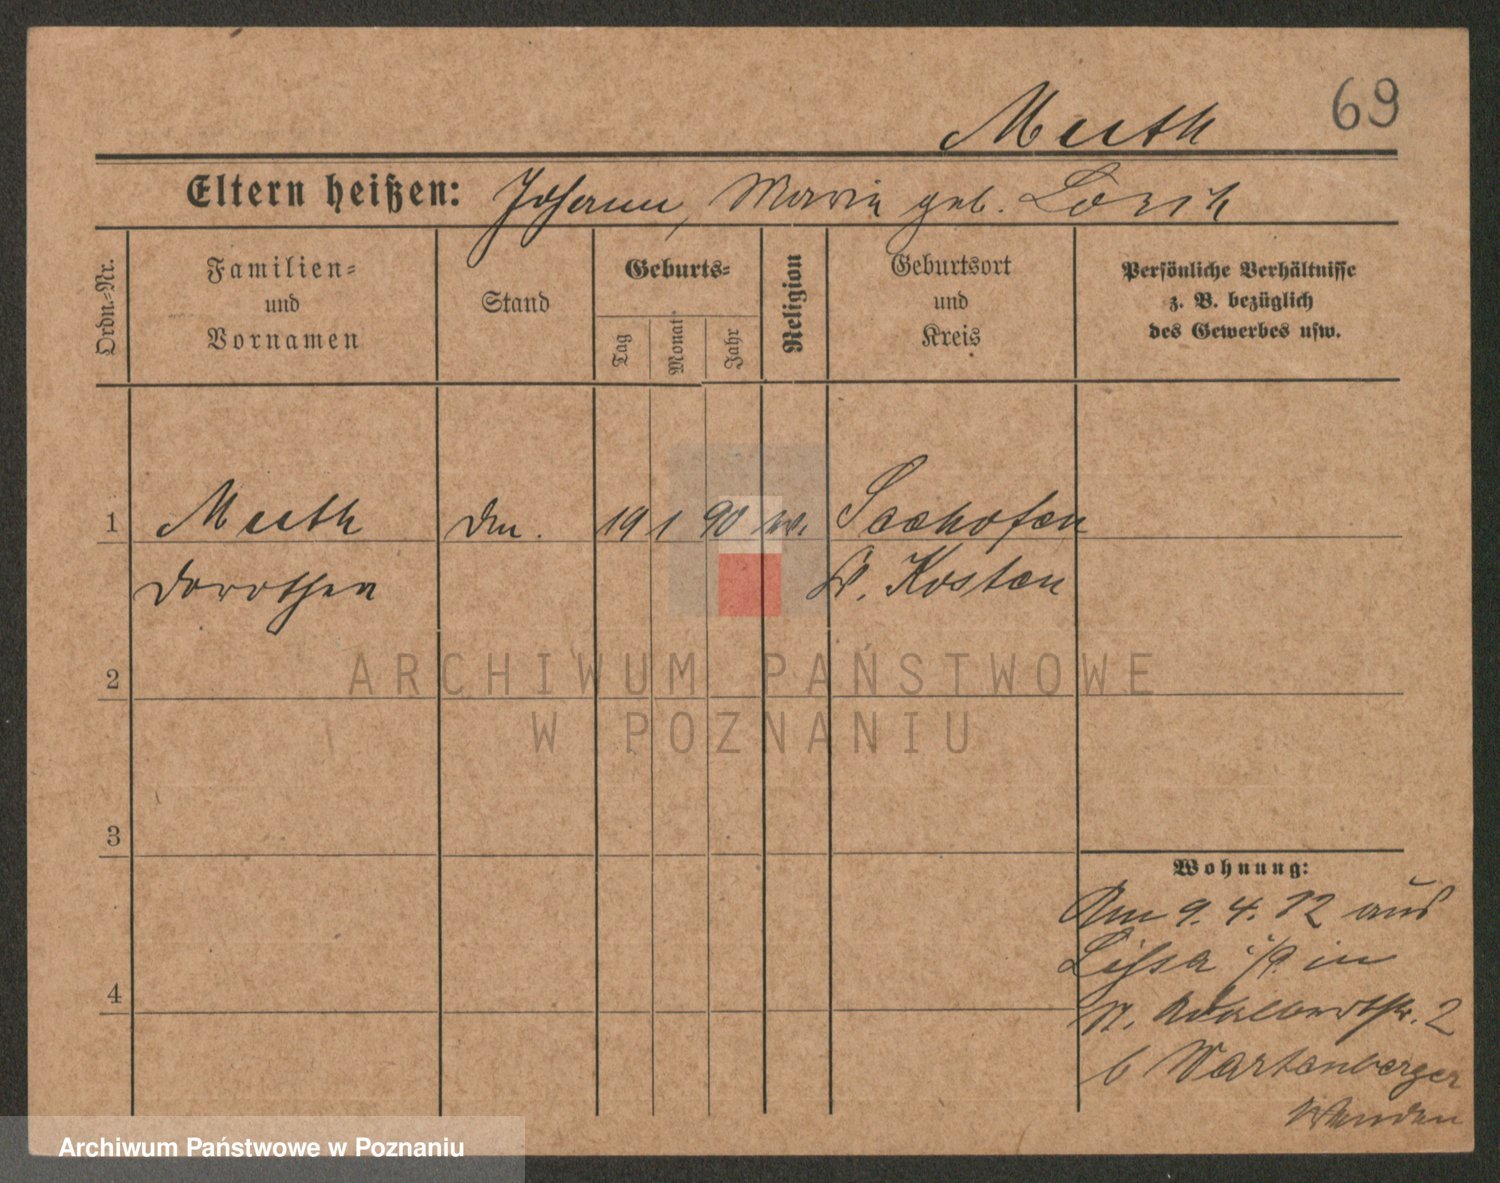 69
Muth
Eltern heißen: Johann, Marie geb.
Ordn.-Nr.
Familien=
und
Vornamen
Stand
Geburts=
Tag
Monat
Jahr
Religion
Geburtsort
und
Kreis
Persönliche Verhältnisse
z. B. bezüglich
des Gewerbes usw.
1 Muth 19 1 90
Dorothea Kosten
2
3
4
ARCHIWUM PAŃSTWOWE
W POZNANIU
Wohnung:
Am 9. 4. 12 aus
Lissa i/P. in
2
b Wartenberger
Archiwum Państwowe w Poznaniu